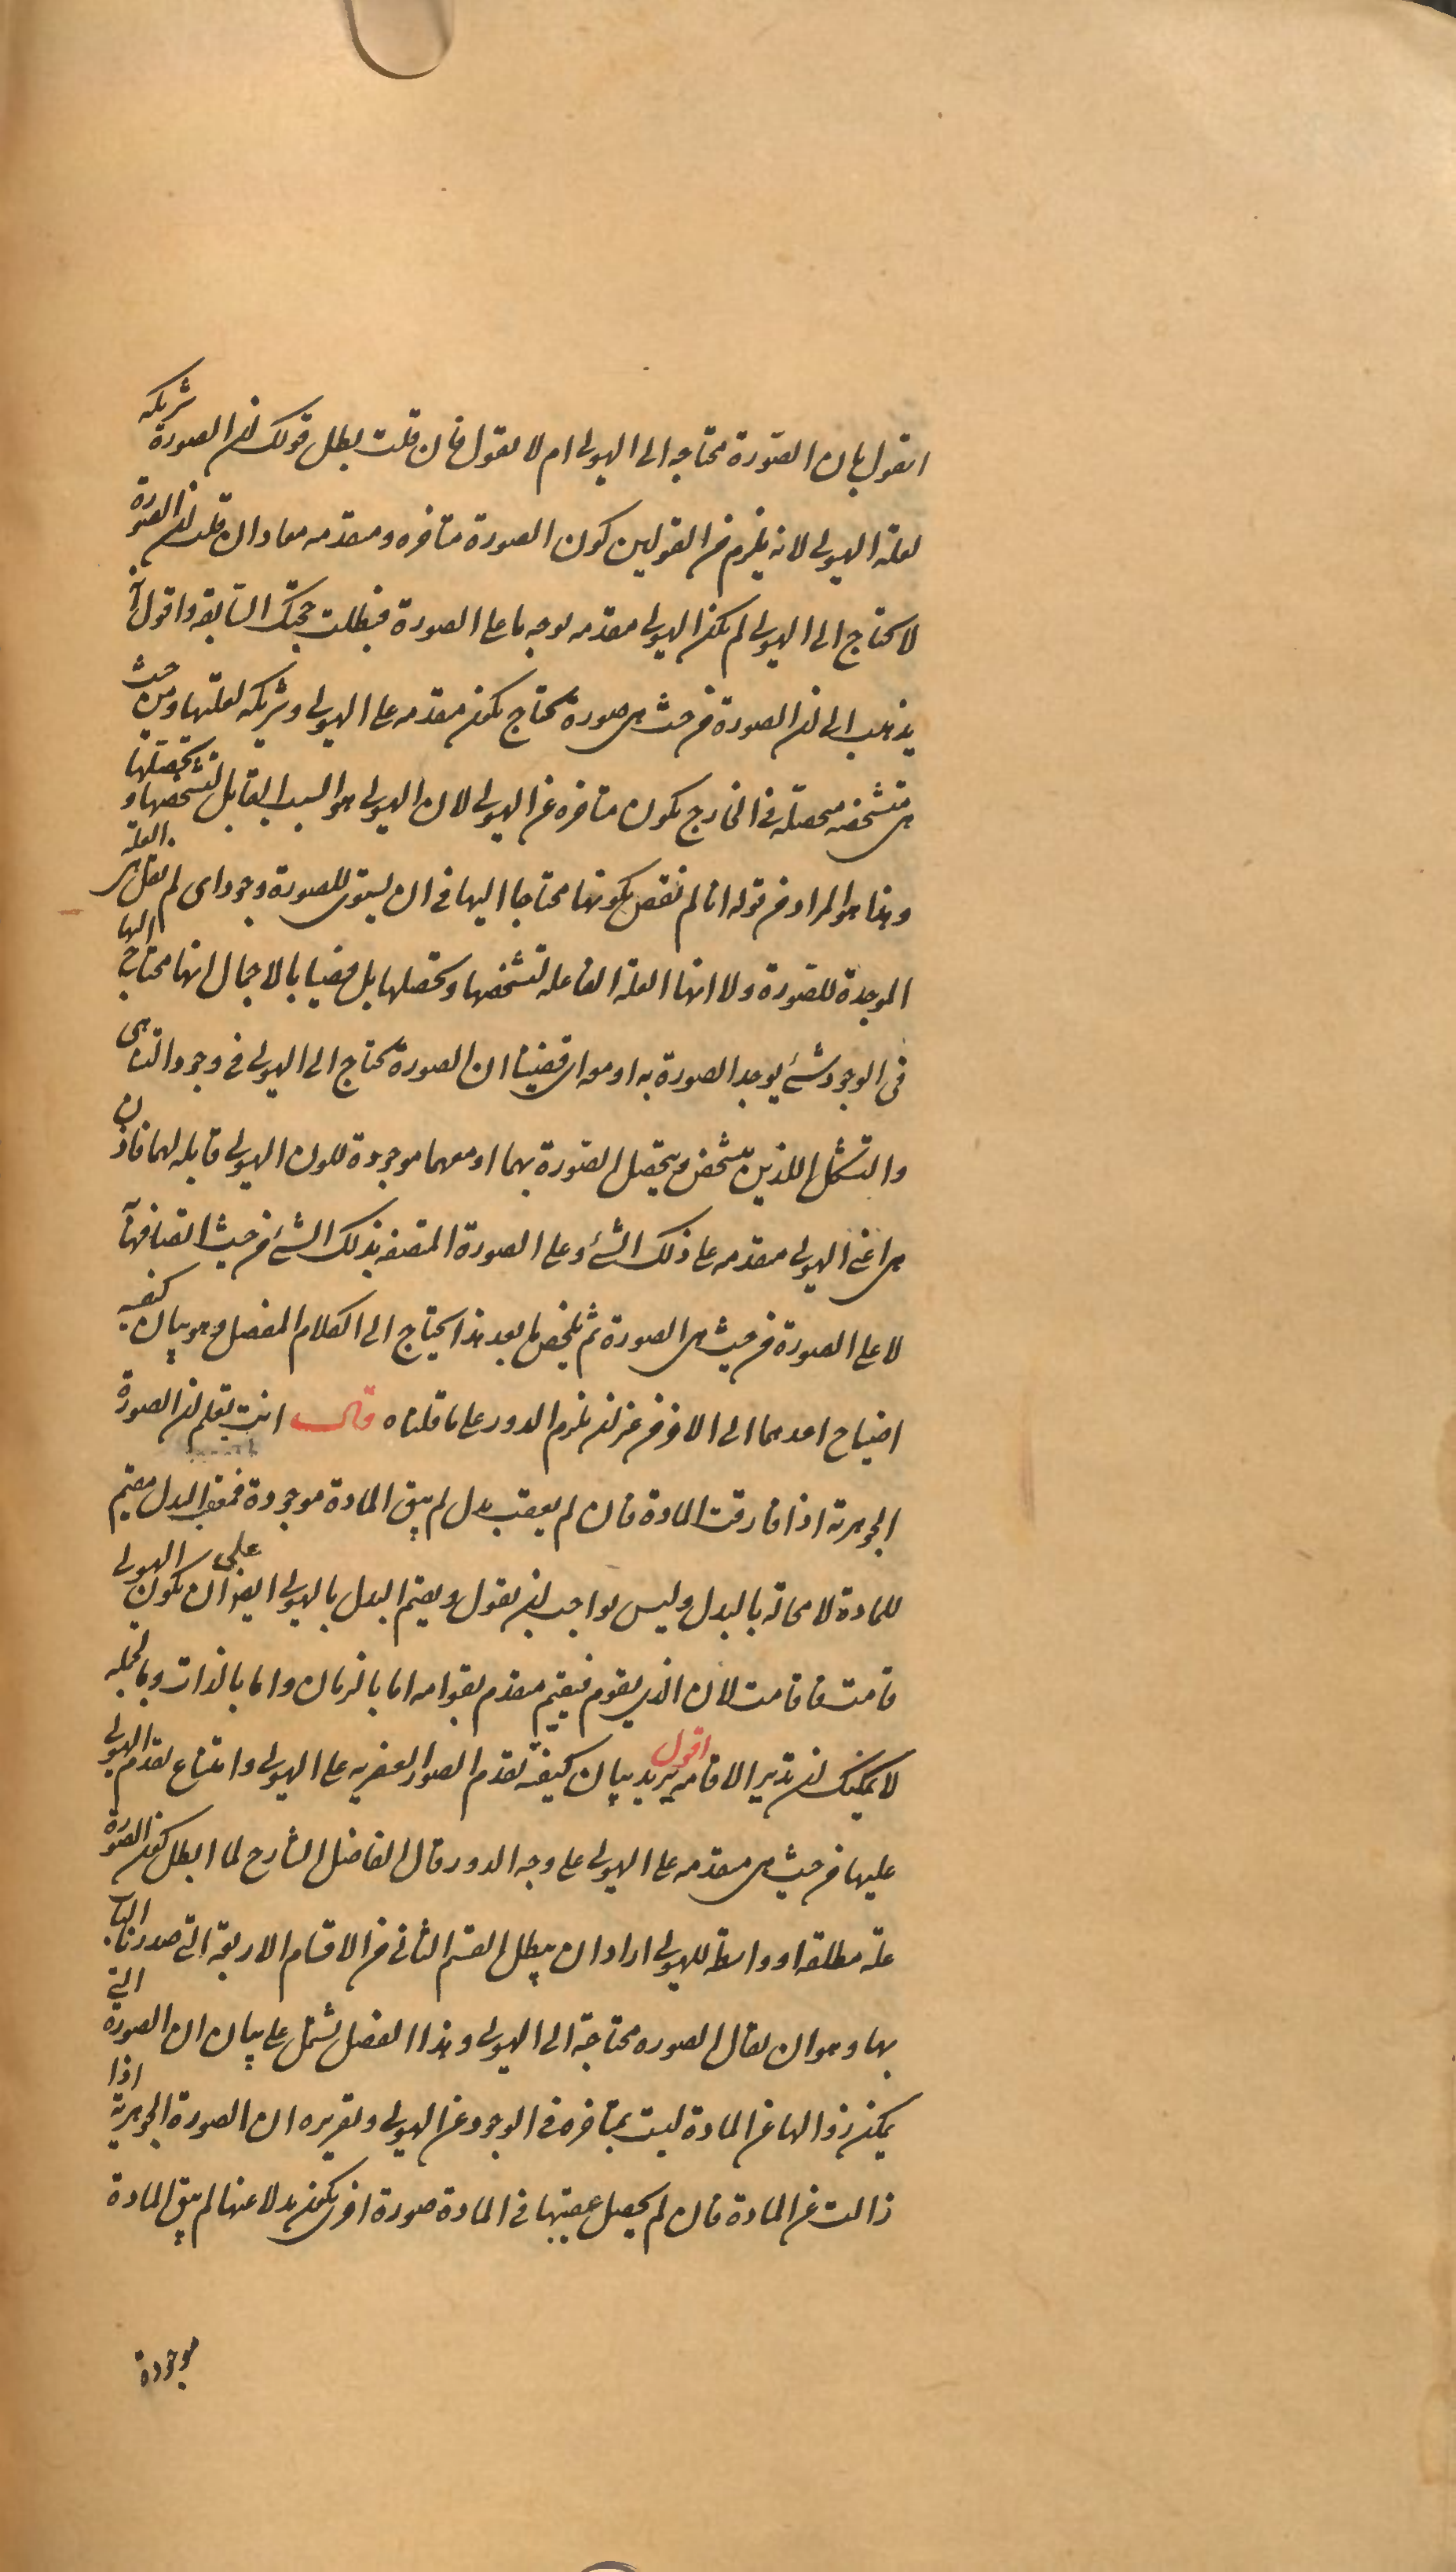 اتقول بان الصورة محتاجه الى الهيولى ام لا تقول فان قلت بطل قولك ان الصورة شريكه
لعلة الهيولى لانه يلزم من القولين كون الصورة متاخره ومتقدمه معا وان قلت ان الصورة
لا تحتاج الى الهيولى لم تكن الهيولى متقدمه بوجه ما على الصورة فبطلت حجتك السابقه واقول انه
يذهب الى ان الصورة من حيث هى صورة تكون متقدمه على الهيولى وشريكه لعلتها ومن حيث
هى متشخصه محصله فى الخارج تكون متاخره عن الهيولى لان الهيولى هو السبب القابل لتشخصها وتحصلها
وهذا هو المراد من قوله انا لم نقض بكونها محتاجا اليها فى ان يستوى للصورة وجود اى لم نقل هى العلة
الموجدة للصورة ولا انها العلة الفاعله لتشخصها وتحصلها بل قضينا بالاجمال انها محتاج اليها
فى الوجود شئ يوجد الصورة به او معه اى قضينا ان الصورة تحتاج الى الهيولى فى وجود التناهى
والتشكل اللذين تتشخص وتتحصل الصورة بهما او معهما موجودة لكون الهيولى قابله لهما فاذن
هى اعنى الهيولى متقدمه على ذلك الشئ وعلى الصورة المتصفه بذلك الشئ من حيث اتصافها به
لا على الصورة من حيث هى الصورة ثم تلخيص ما بعد هذا يحتاج الى الكلام المفصل وهو بيان كيفيه
احتياج احدهما الى الاخر من غير ان يلزم الدور على ما قلناه قال انت تعلم ان الصورة
الجوهرية اذا فارقت المادة فان لم يعقب بدل لم يبق المادة موجودة فمعقب البدل مقيم
للمادة لا محاله بالبدل وليس بواجب ان نقول ويقيم البدل بالهيولى ايضا على ان تكون الهيولى
قامت فاقامت لان الذى يقوم فيقيم متقدم بقوامه اما بالزمان واما بالذات وبالجمله
لا يمكنك ان تدير الاقامه اقول يريد بيان كيفية تقدم الصور العنصريه على الهيولى وامتناع تقدم الهيولى
عليها من حيث هى متقدمه على الهيولى على وجه الدور قال الفاضل الشارح لما ابطل كون الصورة
علة مطلقه او واسطه للهيولى اراد ان يبطل القسم الثانى من الاقسام الاربعة التى صدرنا الباب
بها وهو ان يقال الصوره محتاجة الى الهيولى وهذا الفصل يشتمل على بيان ان الصورة التى
يمكن زوالها عن المادة ليست بمتاخره فى الوجود عن الهيولى وتقريره ان الصورة الجوهرية اذا
زالت عن المادة فان لم يحصل عقيبها فى المادة صورة اخرى تكون بدلا عنها لم يبق المادة
موجودة